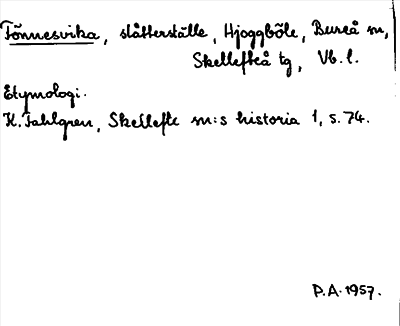 Tönnesvika, slåtterställe, Hjoggböle, Bureå sn,
Skellefteå tg, Vb. l.
Etymologi.
K. Fahlgren, Skellefte sn:s historia 1, s. 74.
P.A. 1957.